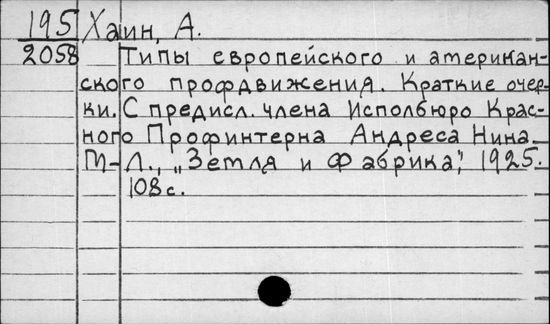 195 Хаин, А.
2058 Типы европейского и американ-
ского профдвижения. Краткие очер-
ки. С предисл. члена Исполбюро Крас-
ного Профинтерна Андреса Нина.
М-Л., „Земля и Фабрика", 1925.
108 с.